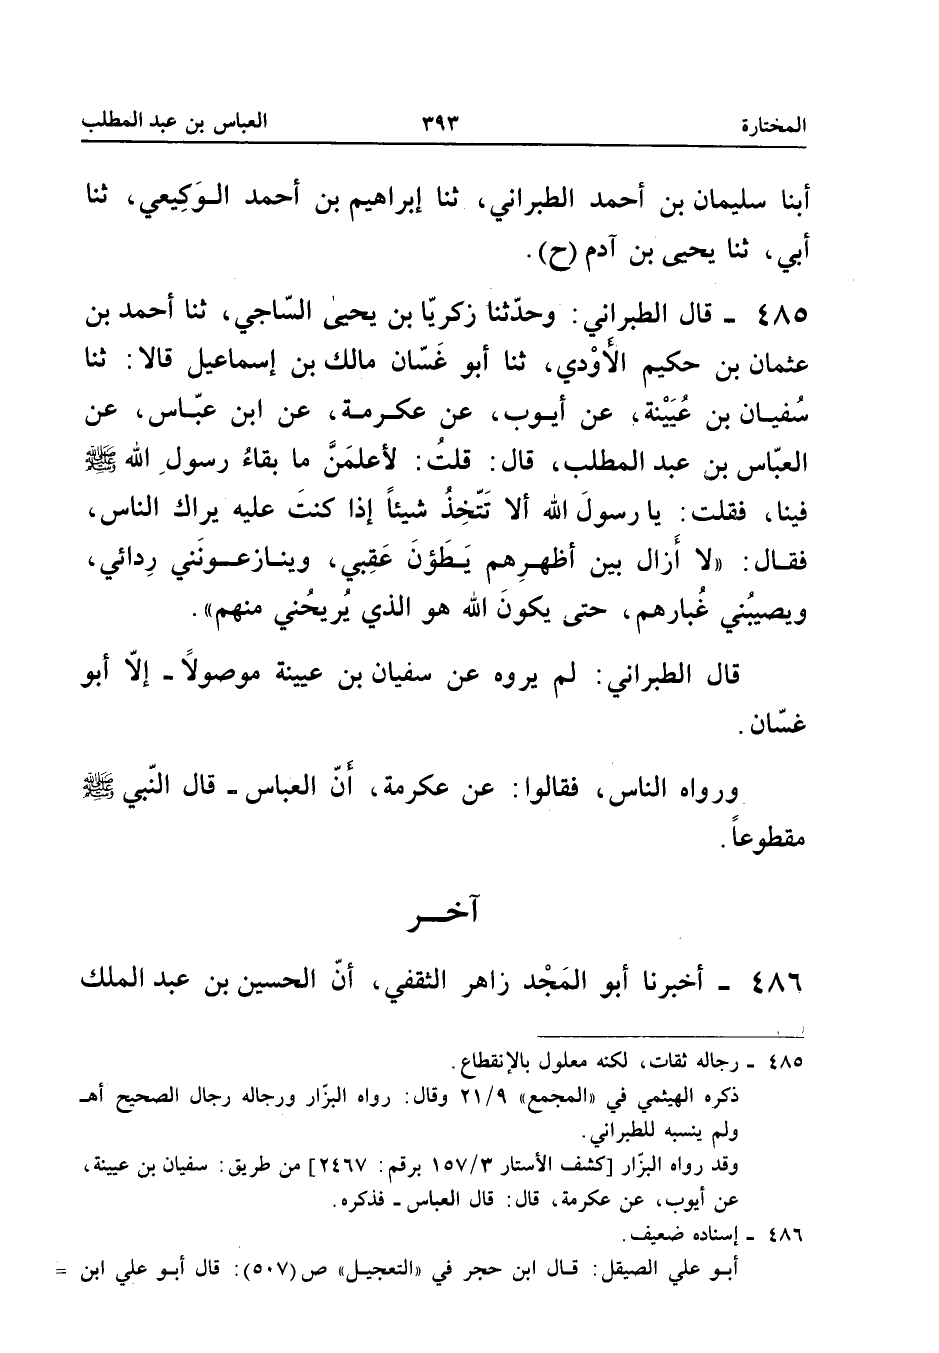 المختارة ٣٩٣ العباس بن عبد المطلب
أبنا سليمان بن أحمد الطبراني، ثنا إبراهيم بن أحمد الـوَكِيعي، ثنا
أبي، ثنا يحيى بن آدم (ح).
٤٨٥ ـ قال الطبراني: وحدّثنا زكريّا بن يحيىٰ السّاجي، ثنا أحمد بن
عثمان بن حكيم الأَوْدي، ثنا أبو غَسّان مالك بن إسماعيل قالا: ثنا
سُفيـان بن عُيَيْنة، عن أيـوب، عن عكـرمـة، عن ابن عبّـاس، عن
العبّاس بن عبد المطلب، قال: قلتُ: لأعلمَنَّ ما بقاءُ رسول الله ﷺ
فينا، فقلت: يا رسولَ الله ألا تَتّخِذُ شيئاً إذا كنتَ عليه يراك الناس،
فقـال: «لا أَزال بين أظهـرِهم يَـطَؤنَ عَقِبي، وينـازعـونَني رِدائي،
ويصيبُني غُبارهم، حتى يكونَ الله هو الذي يُريحُني منهم».
قال الطبراني: لم يروه عن سفيان بن عيينة موصولاً ـ إلاّ أبو
غسّان.
ورواه الناس، فقالوا: عن عكرمة، أَنّ العباس ـ قال النّبي ﷺ
مقطوعاً.
آخـــر
٤٨٦ ـ أخبرنا أبو المَجْد زاهر الثقفي، أنّ الحسين بن عبد الملك
٤٨٥ ـ رجاله ثقات، لكنه معلول بالإنقطاع.
ذكره الهيثمي في «المجمع» ٢١/٩ وقال: رواه البزّار ورجاله رجال الصحيح أهـ
ولم ينسبه للطبراني.
وقد رواه البزّار [كشف الأستار ١٥٧/٣ برقم: ٢٤٦٧] من طريق: سفيان بن عيينة،
عن أيوب، عن عكرمة، قال: قال العباس ـ فذكره.
٤٨٦ ـ إسناده ضعيف.
أبـو علي الصيقل: قـال ابن حجر في «التعجيـل» ص (٥٠٧): قال أبـو علي ابن =